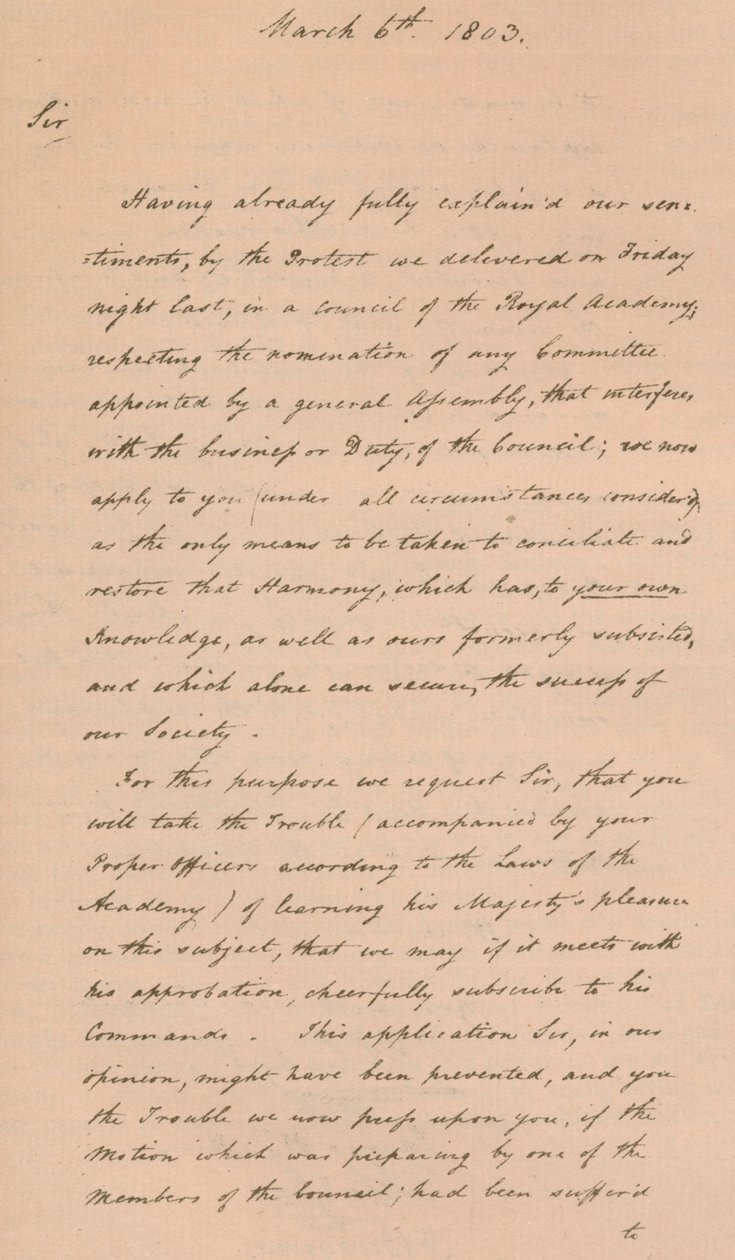 March 6th. 1803.
Sir
Having already fully explain'd our sen=
=timents, by the Protest we delivered on Friday
night last, in a Council of the Royal Academy;
respecting the nomination of any Committee
appointed by a general Assembly, that interferes
with the business or Duty, of the Council; we now
apply to you (under all circumstances consider'd)
as the only means to be taken to conciliate and
restore that Harmony, which has, to your own
Knowledge, as well as ours formerly subsisted,
and which alone can secure, the success of
our Society.
For this purpose we request Sir, that you
will take the Trouble (accompanied by your
Proper Officers according to the Laws of the
Academy) of learning his Majesty's pleasure
on this subject, that we may if it meets with
his approbation, cheerfully subscribe to his
Commands. This application Sir, in our
opinion, might have been prevented, and you
the Trouble we now press upon you, if the
Motion which was preparing by one of the
Members of the Council; had been suffer'd
to